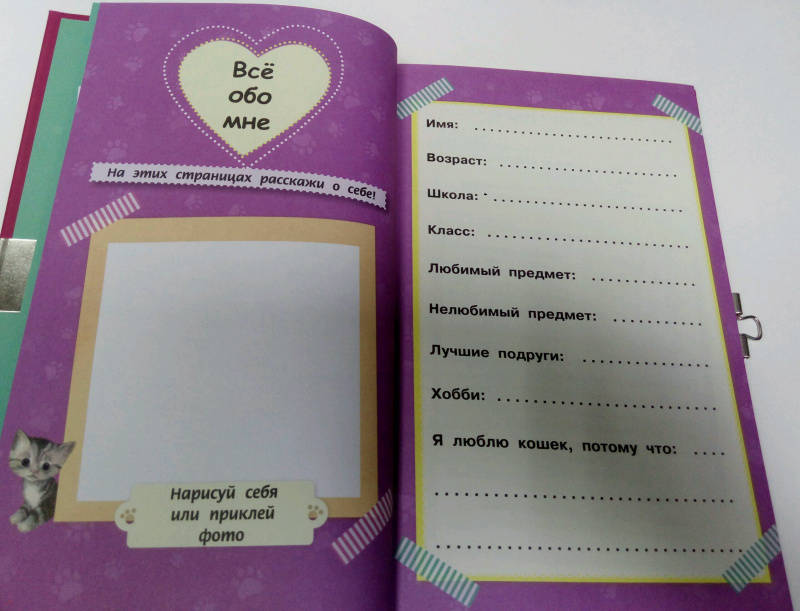 Всё
обо
мне
На этих страницах расскажи о себе!
Нарисуй себя
или приклей
фото
Имя: ........................
Возраст: ......................
Школа: ........................
Класс: ........................
Любимый предмет: .............
Нелюбимый предмет: ...........
Лучшие подруги: ..............
Хобби: ..........................
Я люблю кошек, потому что: ....
..................................
..................................